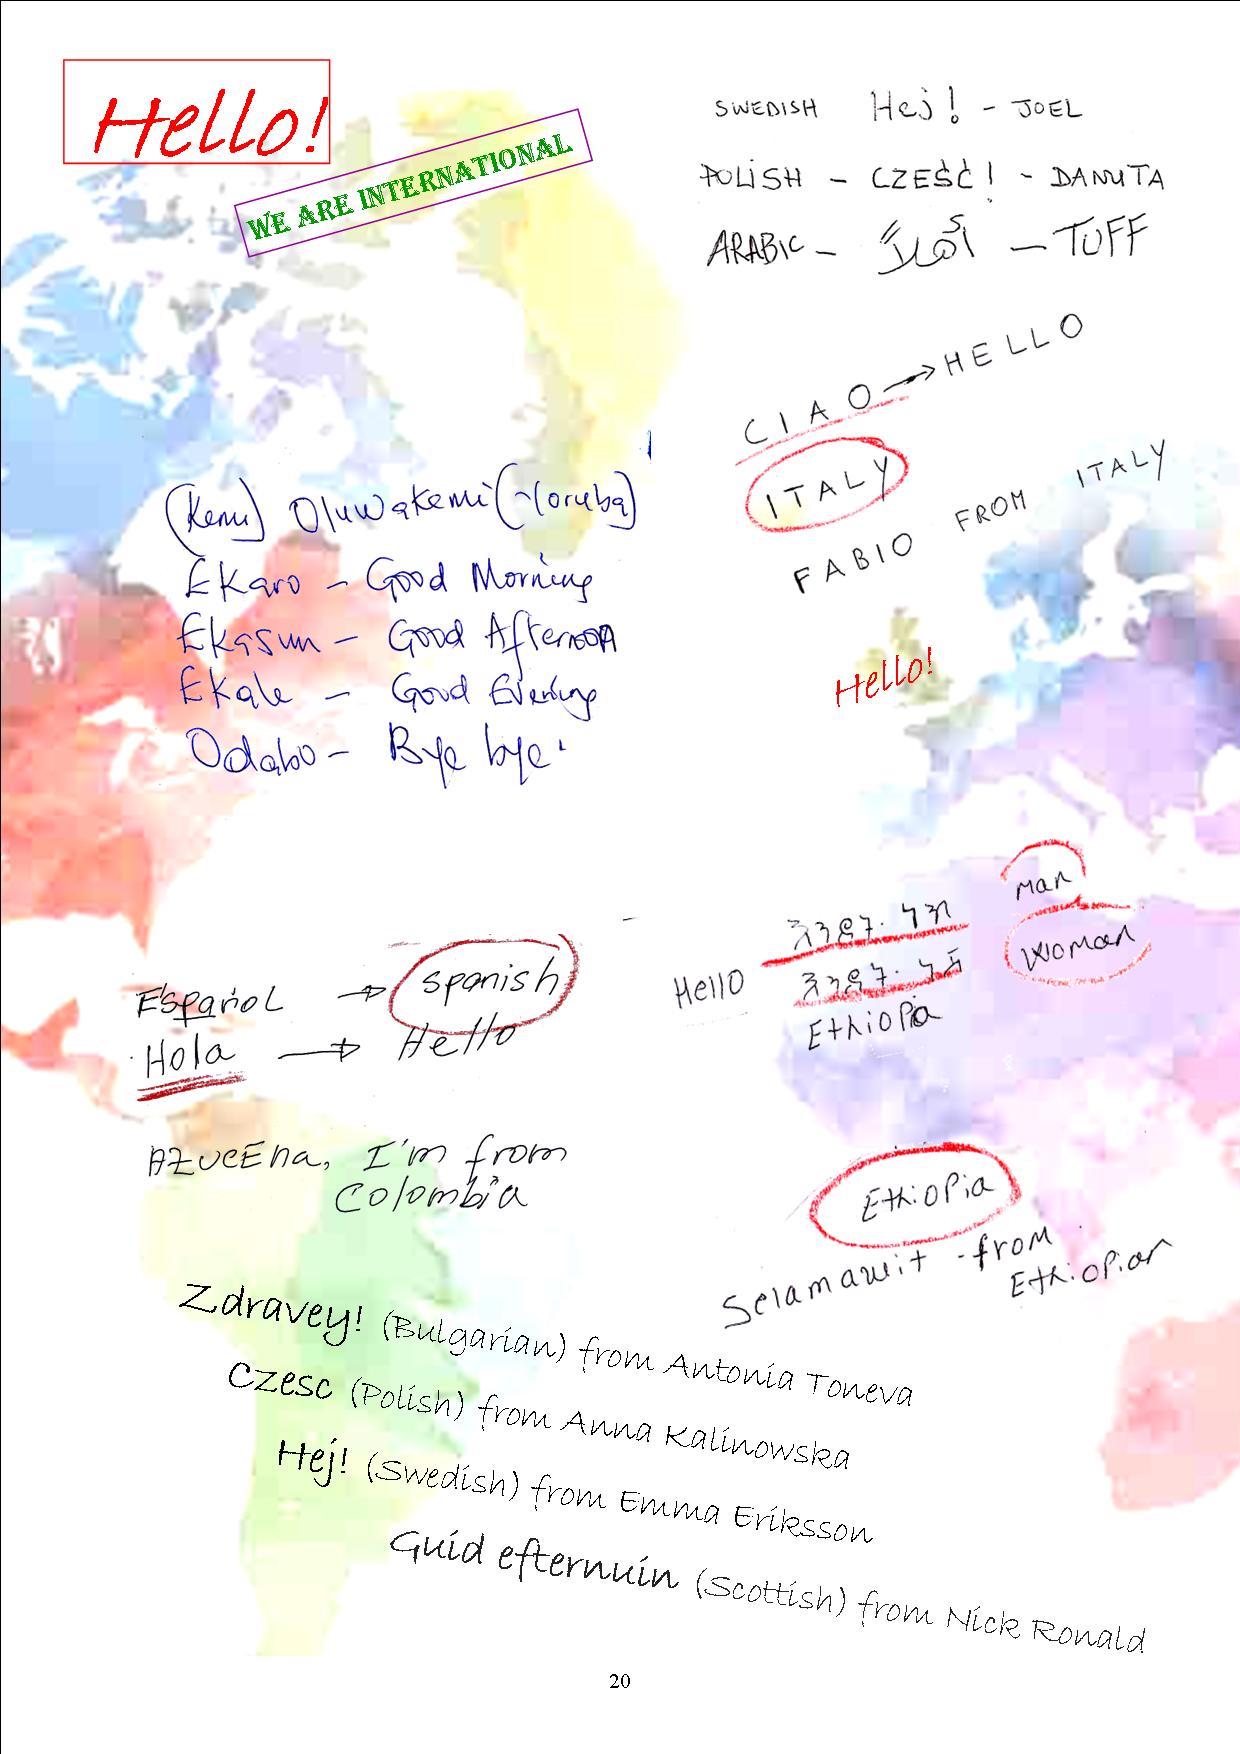 Hello!
WE ARE INTERNATIONAL
SWEDISH Hej! - JOEL
POLISH - CZEŚĆ! - DANUTA
ARABIC - أهلاً - TUFF
CIAO → HELLO
ITALY
FABIO FROM ITALY
(Kemi) Oluwakemi (Yoruba)
Ekaro - Good Morning
Ekasun - Good Afternoon
Ekale - Good Evening
Odabo - Bye bye.
Hello!
Español → Spanish
Hola → Hello
AZUCEna, I'm from
Colombia
Hello እንደት ነህ man
እንደት ነሽ woman
Ethiopia
Ethiopia
Selamawit - from
Ethiopian
Zdravey! (Bulgarian) from Antonia Toneva
Czesc (Polish) from Anna Kalinowska
Hej! (Swedish) from Emma Eriksson
Guid efternuin (Scottish) from Nick Ronald
20